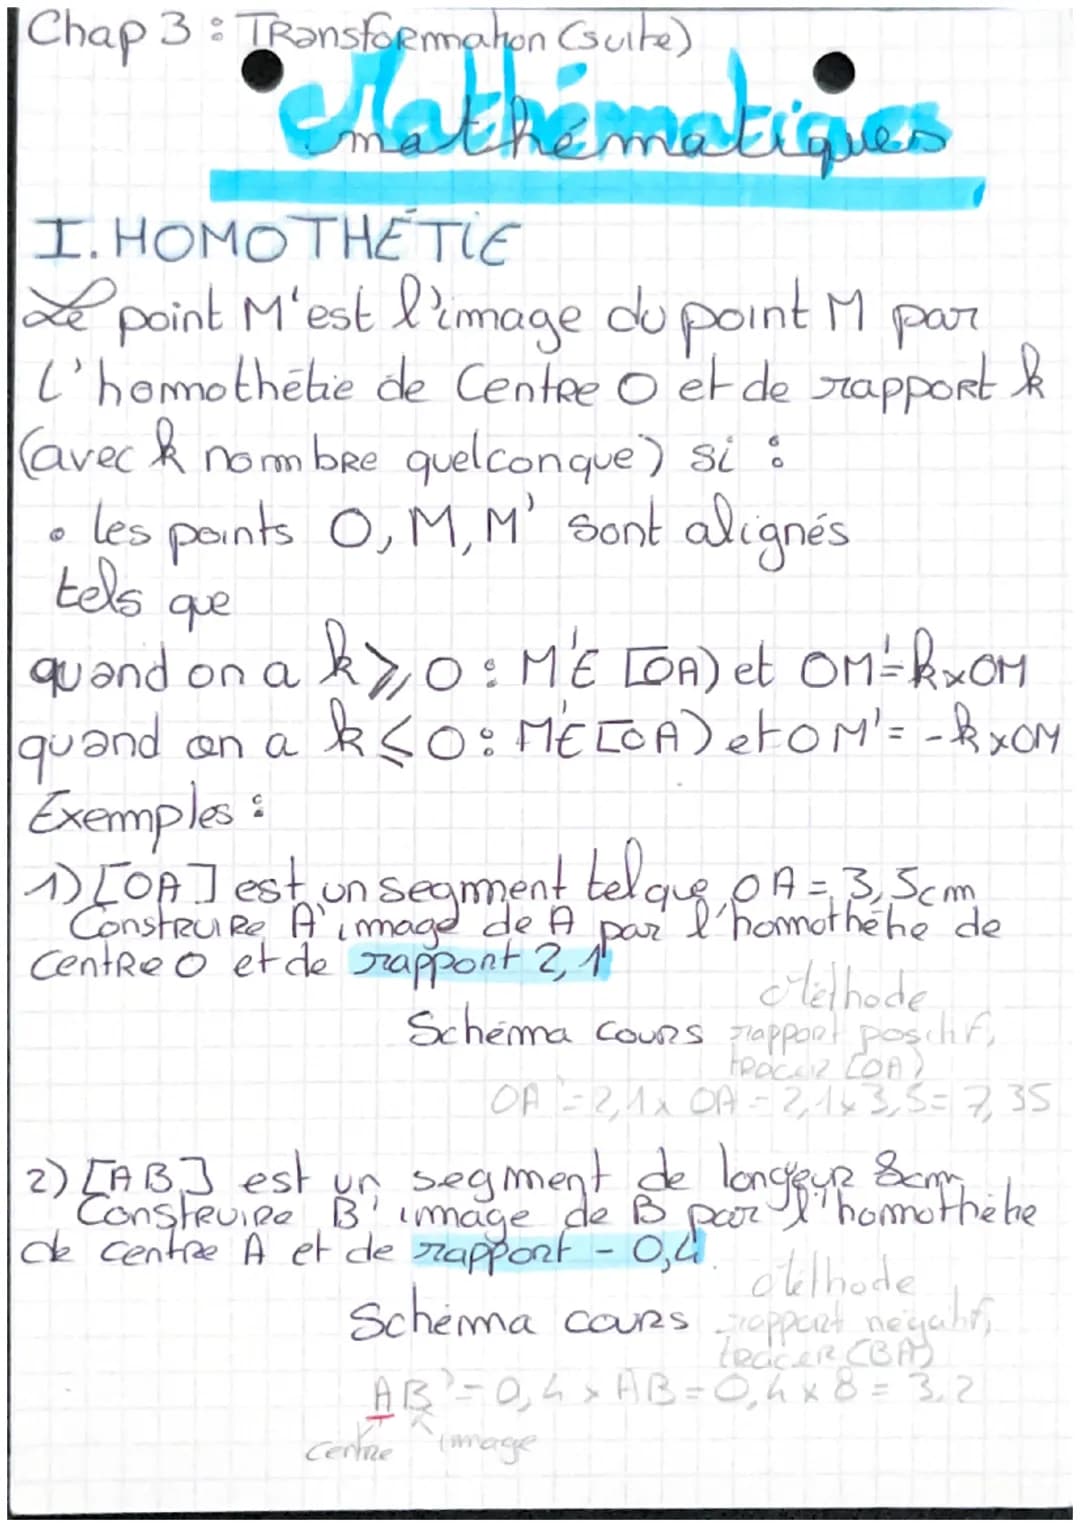 Chap 3 : Transformation (suite)
Mathématiques
mathématiques
I. HOMOTHÉTIE
Le point M' est l'image du point M par
l'homothétie de Centre O et de rapport k
(avec k nombre quelconque) si :
• les points O, M, M' sont alignés
tels que
quand on a k ⩾ 0 : M'∈ [OA) et OM'= k×OM
quand on a k ⩽ 0 : M'∈ [OA) et OM'= -k×OM
Exemples :
1) [OA] est un segment tel que OA = 3,5cm
Construire A' image de A par l'homothétie de
centre O et de rapport 2,1
Méthode
Schéma cours rapport positif,
tracer [OA)
OA'=2,1× OA = 2,1×3,5= 7,35
2) [AB] est un segment de longeur 8cm
Construire B' image de B par l'homothétie
de centre A et de rapport - 0,4.
Méthode
Schéma cours rapport négatif,
tracer [BA)
AB'= 0,4 × AB = 0,4 × 8 = 3,2
centre image